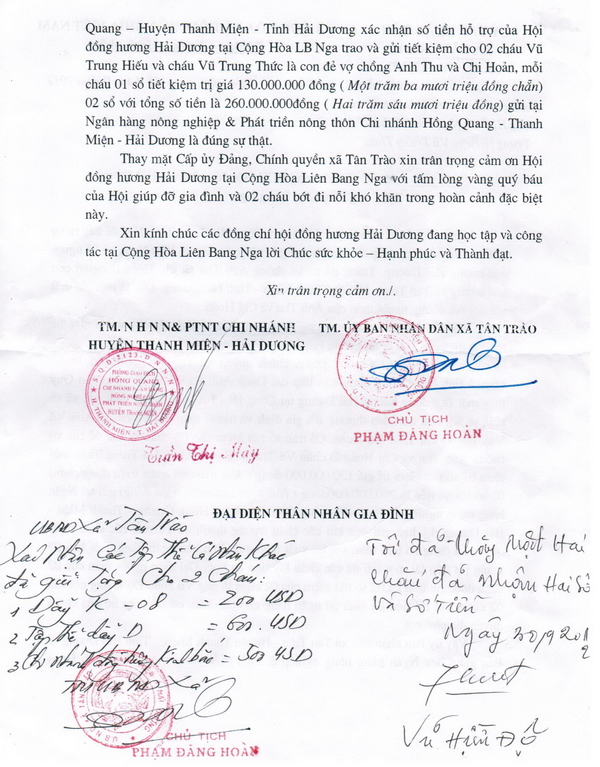 Quang – Huyện Thanh Miện - Tỉnh Hải Dương xác nhận số tiền hỗ trợ của Hội
đồng hương Hải Dương tại Cộng Hòa LB Nga trao và gửi tiết kiệm cho 02 cháu Vũ
Trung Hiếu và cháu Vũ Trung Thức là con đẻ vợ chồng Anh Thu và Chị Hoản, mỗi
cháu 01 sổ tiết kiệm trị giá 130.000.000 đồng ( Một trăm ba mươi triệu đồng chẵn)
02 sổ với tổng số tiền là 260.000.000đồng ( Hai trăm sáu mươi triệu đồng) gửi tại
Ngân hàng nông nghiệp & Phát triển nông thôn Chi nhánh Hồng Quang - Thanh
Miện - Hải Dương là đúng sự thật.
Thay mặt Cấp ủy Đảng, Chính quyền xã Tân Trào xin trân trọng cảm ơn Hội
đồng hương Hải Dương tại Cộng Hòa Liên Bang Nga với tấm lòng vàng quý báu
của Hội giúp đỡ gia đình và 02 cháu bớt đi nỗi khó khăn trong hoàn cảnh đặc biệt
này.
Xin kính chúc các đồng chí hội đồng hương Hải Dương đang học tập và công
tác tại Cộng Hòa Liên Bang Nga lời Chúc sức khỏe – Hạnh phúc và Thành đạt.
Xin trân trọng cảm ơn./.
TM. N H N N& PTNT CHI NHÁNH
HUYỆN THANH MIỆN - HẢI DƯƠNG
TM. ỦY BAN NHÂN DÂN XÃ TÂN TRÀO
PHÒNG GIAO DỊCH
HỒNG QUANG
HUYỆN THANH MIỆN
Trần Thị Mây
CHỦ TỊCH
PHẠM ĐĂNG HOÀN
ĐẠI DIỆN THÂN NHÂN GIA ĐÌNH
UBND xã Tân Trào
Xác nhận Các Tập thể Cá nhân Khác
đã gửi Tặng Cho 2 Cháu:
1 Dãy K - 08 = 200 USD
2 Tập thể dãy D = 600. USD
3 = 500 USD
TM UBND xã
CHỦ TỊCH
PHẠM ĐĂNG HOÀN
Tôi đã
cháu đã nhận Hai sổ
và số tiền
Ngày 30/9 2012
Vũ Hiền Độ